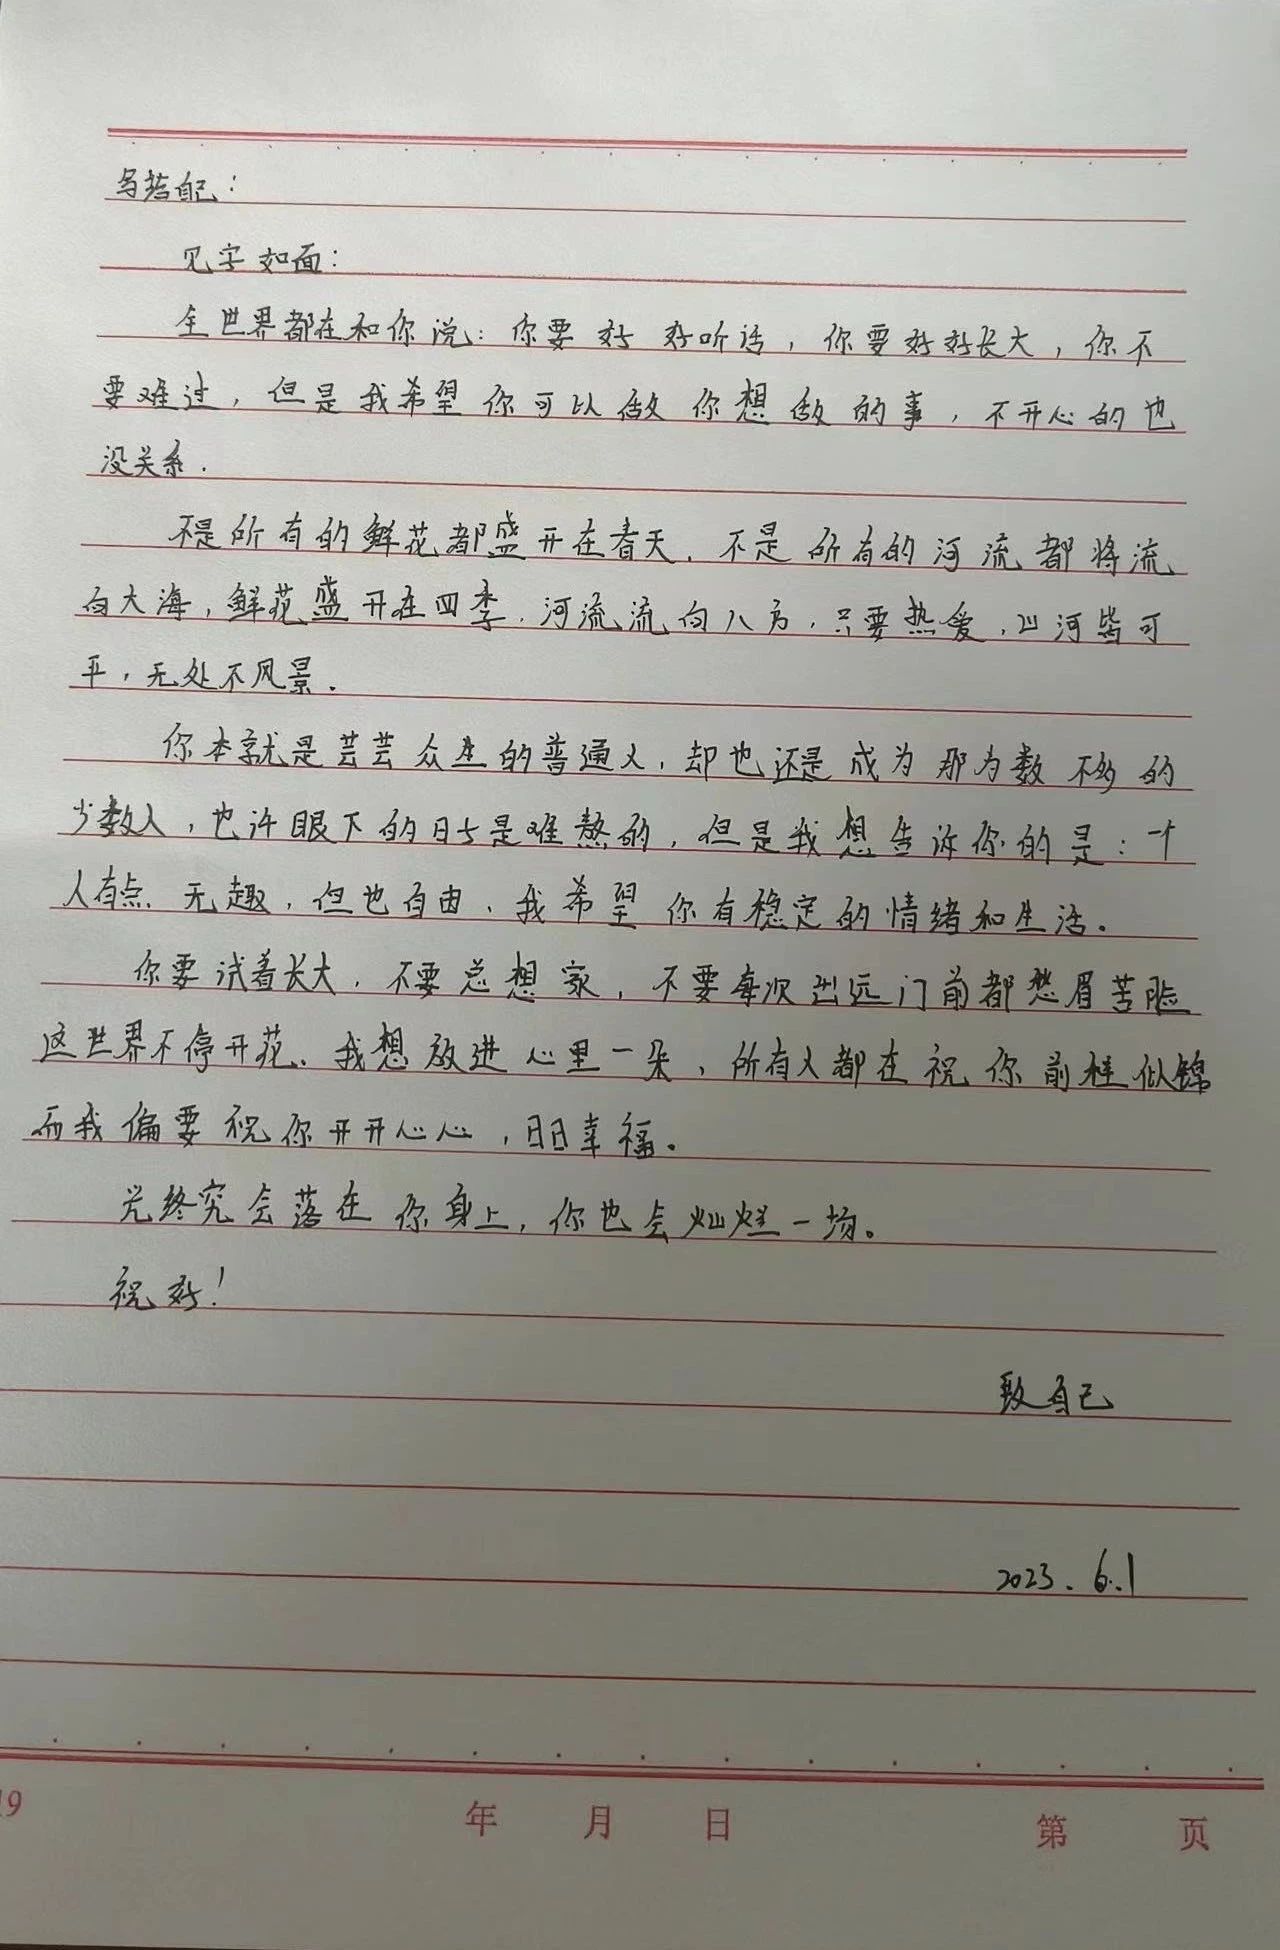 写给自己：
见字如面：
全世界都在和你说：你要好好听话，你要好好长大，你不
要难过，但是我希望你可以做你想做的事，不开心的也
没关系.
不是所有的鲜花都盛开在春天，不是所有的河流都将流
向大海，鲜花盛开在四季，河流流向八方，只要热爱，山河皆可
平，无处不风景.
你本就是芸芸众生的普通人，却也还是成为那为数不多的
少数人，也许眼下的日子是难熬的，但是我想告诉你的是：一个
人有点无趣，但也自由，我希望你有稳定的情绪和生活。
你要试着长大，不要总想家，不要每次出远门前都愁眉苦脸
这世界不停开花、我想放进心里一朵，所有人都在祝你前程似锦
而我偏要祝你开开心心，日日幸福。
光终究会落在你身上，你也会灿烂一场。
祝好！
致自己
2023.6.1
19 年 月 日 第 页